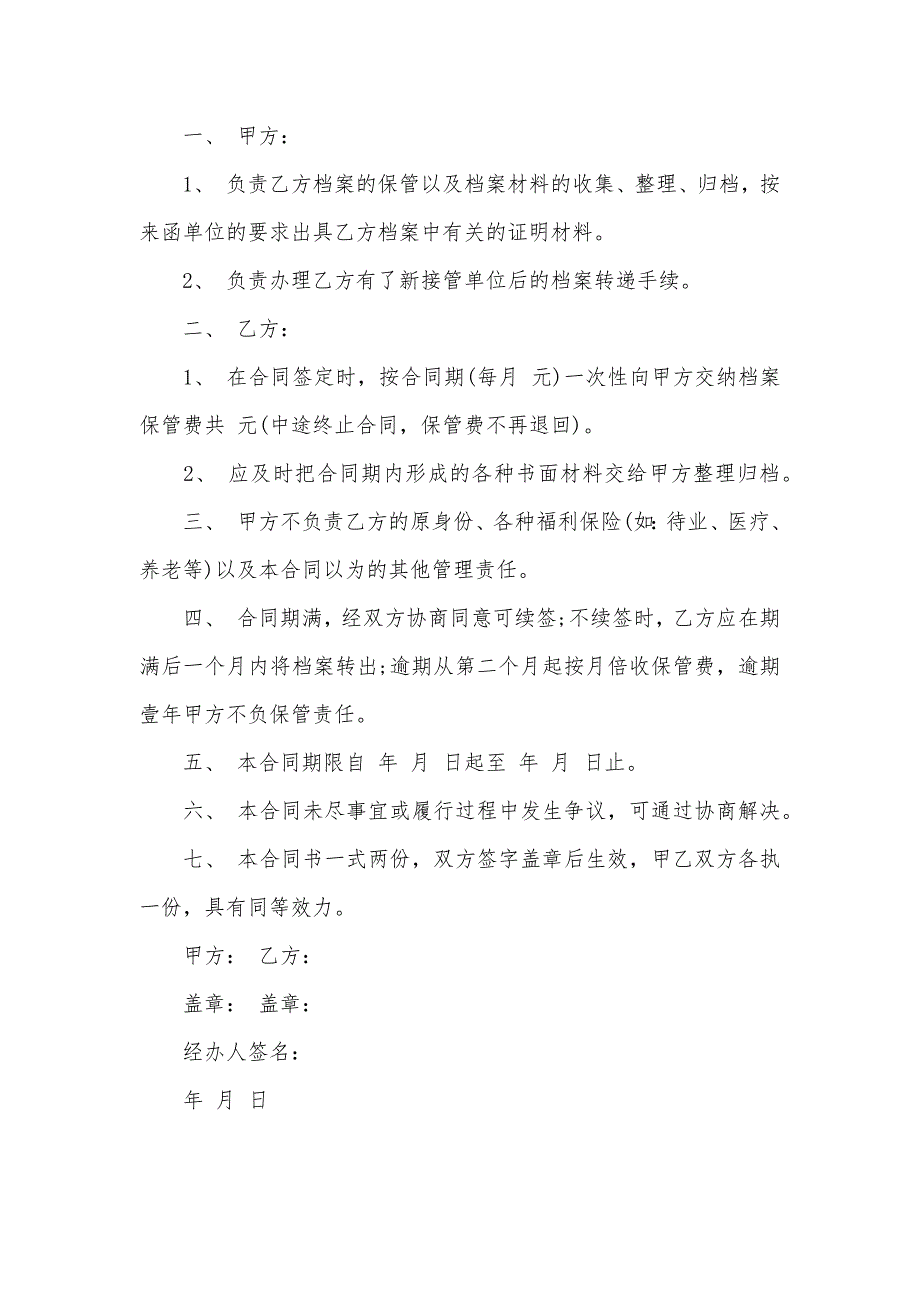 一、 甲方：
1、 负责乙方档案的保管以及档案材料的收集、整理、归档，按
来函单位的要求出具乙方档案中有关的证明材料。
2、 负责办理乙方有了新接管单位后的档案转递手续。
二、 乙方：
1、 在合同签定时，按合同期(每月 元)一次性向甲方交纳档案
保管费共 元(中途终止合同，保管费不再退回)。
2、 应及时把合同期内形成的各种书面材料交给甲方整理归档。
三、 甲方不负责乙方的原身份、各种福利保险(如：待业、医疗、
养老等)以及本合同以为的其他管理责任。
四、 合同期满，经双方协商同意可续签;不续签时，乙方应在期
满后一个月内将档案转出;逾期从第二个月起按月倍收保管费，逾期
壹年甲方不负保管责任。
五、 本合同期限自 年 月 日起至 年 月 日止。
六、 本合同未尽事宜或履行过程中发生争议，可通过协商解决。
七、 本合同书一式两份，双方签字盖章后生效，甲乙双方各执
一份，具有同等效力。
甲方： 乙方：
盖章： 盖章：
经办人签名：
年 月 日